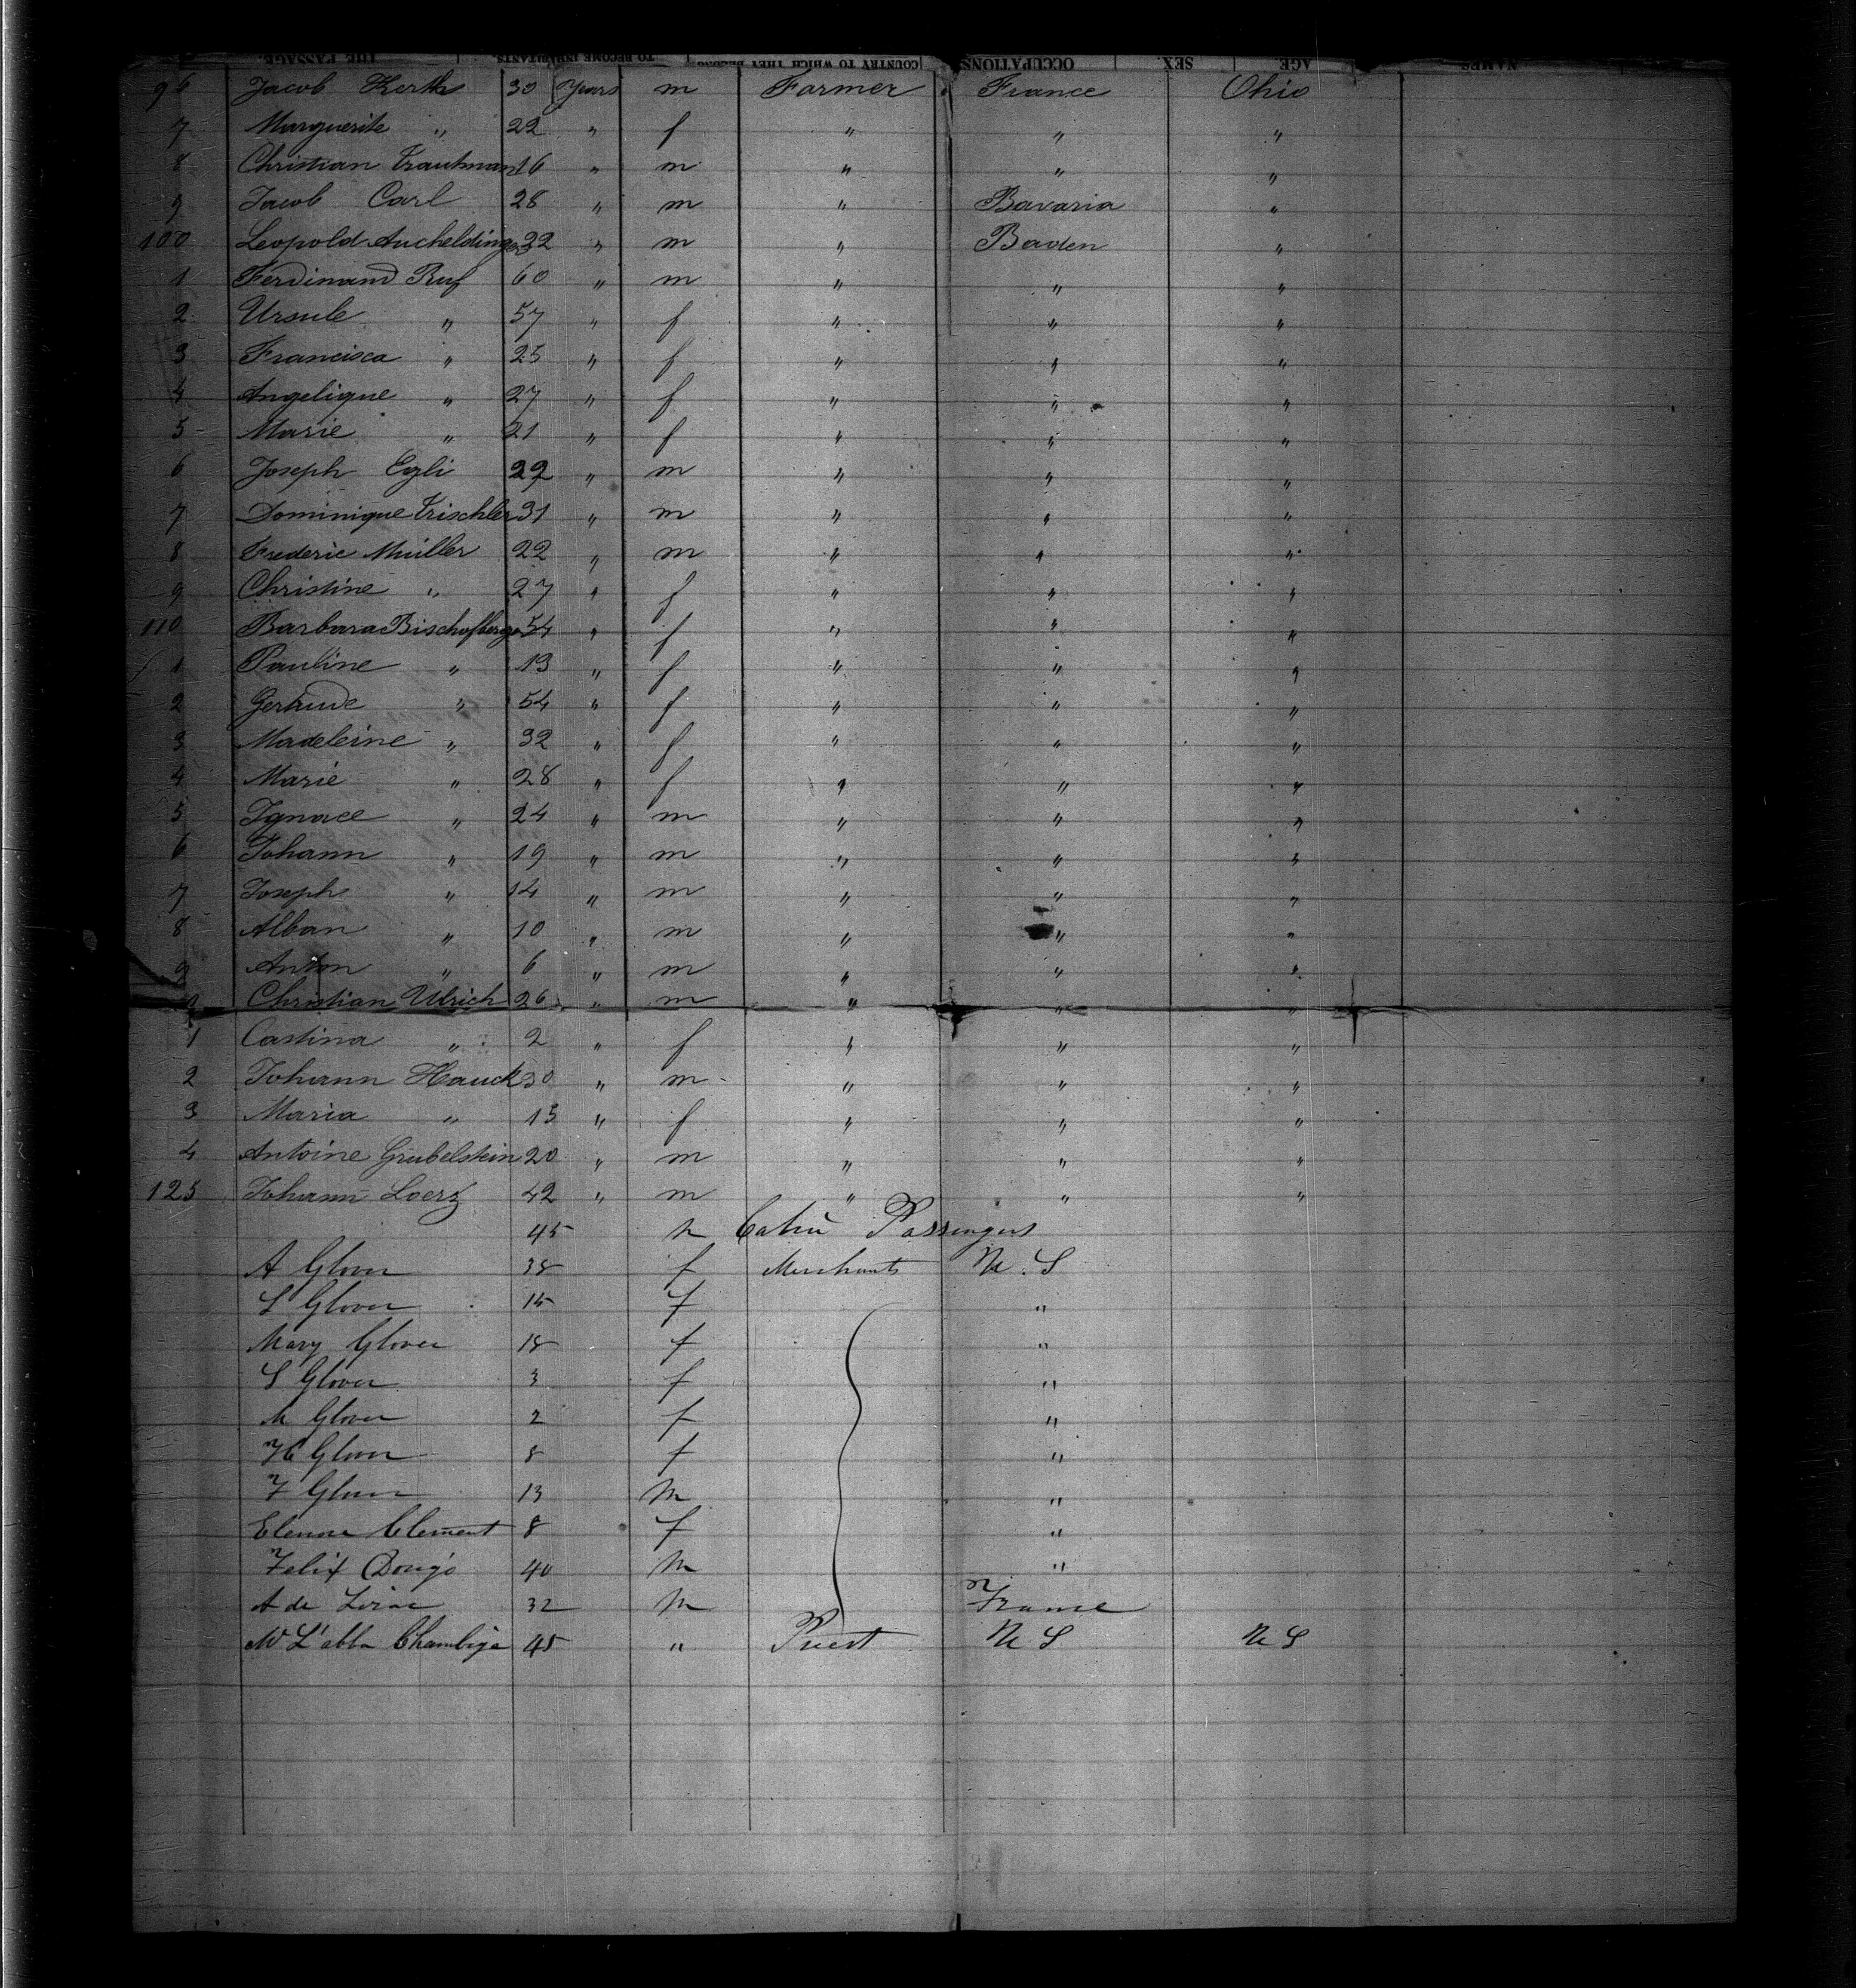 THE PASSAGE. TO BECOME INHABITANTS. COUNTRY TO WHICH THEY BELONG OCCUPATIONS SEX. AGE NAMES
96 Jacob Kerth 30 Years m Farmer France Ohio
7 Marguerite " 22 " f " " "
8 Christian Trautman 16 " m " " "
9 Jacob Carl 28 " m " Bavaria "
100 Leopold Aucheldinger 22 " m " Baden "
1 Ferdinand Ruf 60 " m " " "
2 Ursule " 57 " f " " "
3 Francisca " 25 " f " " "
4 Angelique " 27 " f " " "
5 Marie " 21 " f " " "
6 Joseph Egli 22 " m " " "
7 Dominique Trischler 31 " m " " "
8 Frederic Müller 22 " m " " "
9 Christine " 27 " f " " "
110 Barbara Bischofberger 54 " f " " "
1 Pauline " 13 " f " " "
2 Gertrude " 54 " f " " "
3 Madeleine " 32 " f " " "
4 Marie " 28 " f " " "
5 Ignace " 24 " m " " "
6 Johann " 19 " m " " "
7 Joseph " 14 " m " " "
8 Alban " 10 " m " " "
9 Anton " 6 " m " " "
Christian Ulrich 26 " m " " "
1 Castina " 2 " f " " "
2 Johann Hauck 30 " m " " "
3 Maria " 15 " f " " "
4 Antoine Grubelstein 20 " m " " "
125 Johann Loerz 42 " m " " "
45 m Cabin Passengers
A Glover 38 f Merchants U.S
S Glover 15 f "
Mary Glover 18 f "
S Glover 3 f "
M Glover 2 f "
H Glover 8 f "
F Glover 13 m "
Elenor Clement 8 f "
Felix 40 m "
A de 32 m France
Mr L'abbe 45 " Priest U S U S